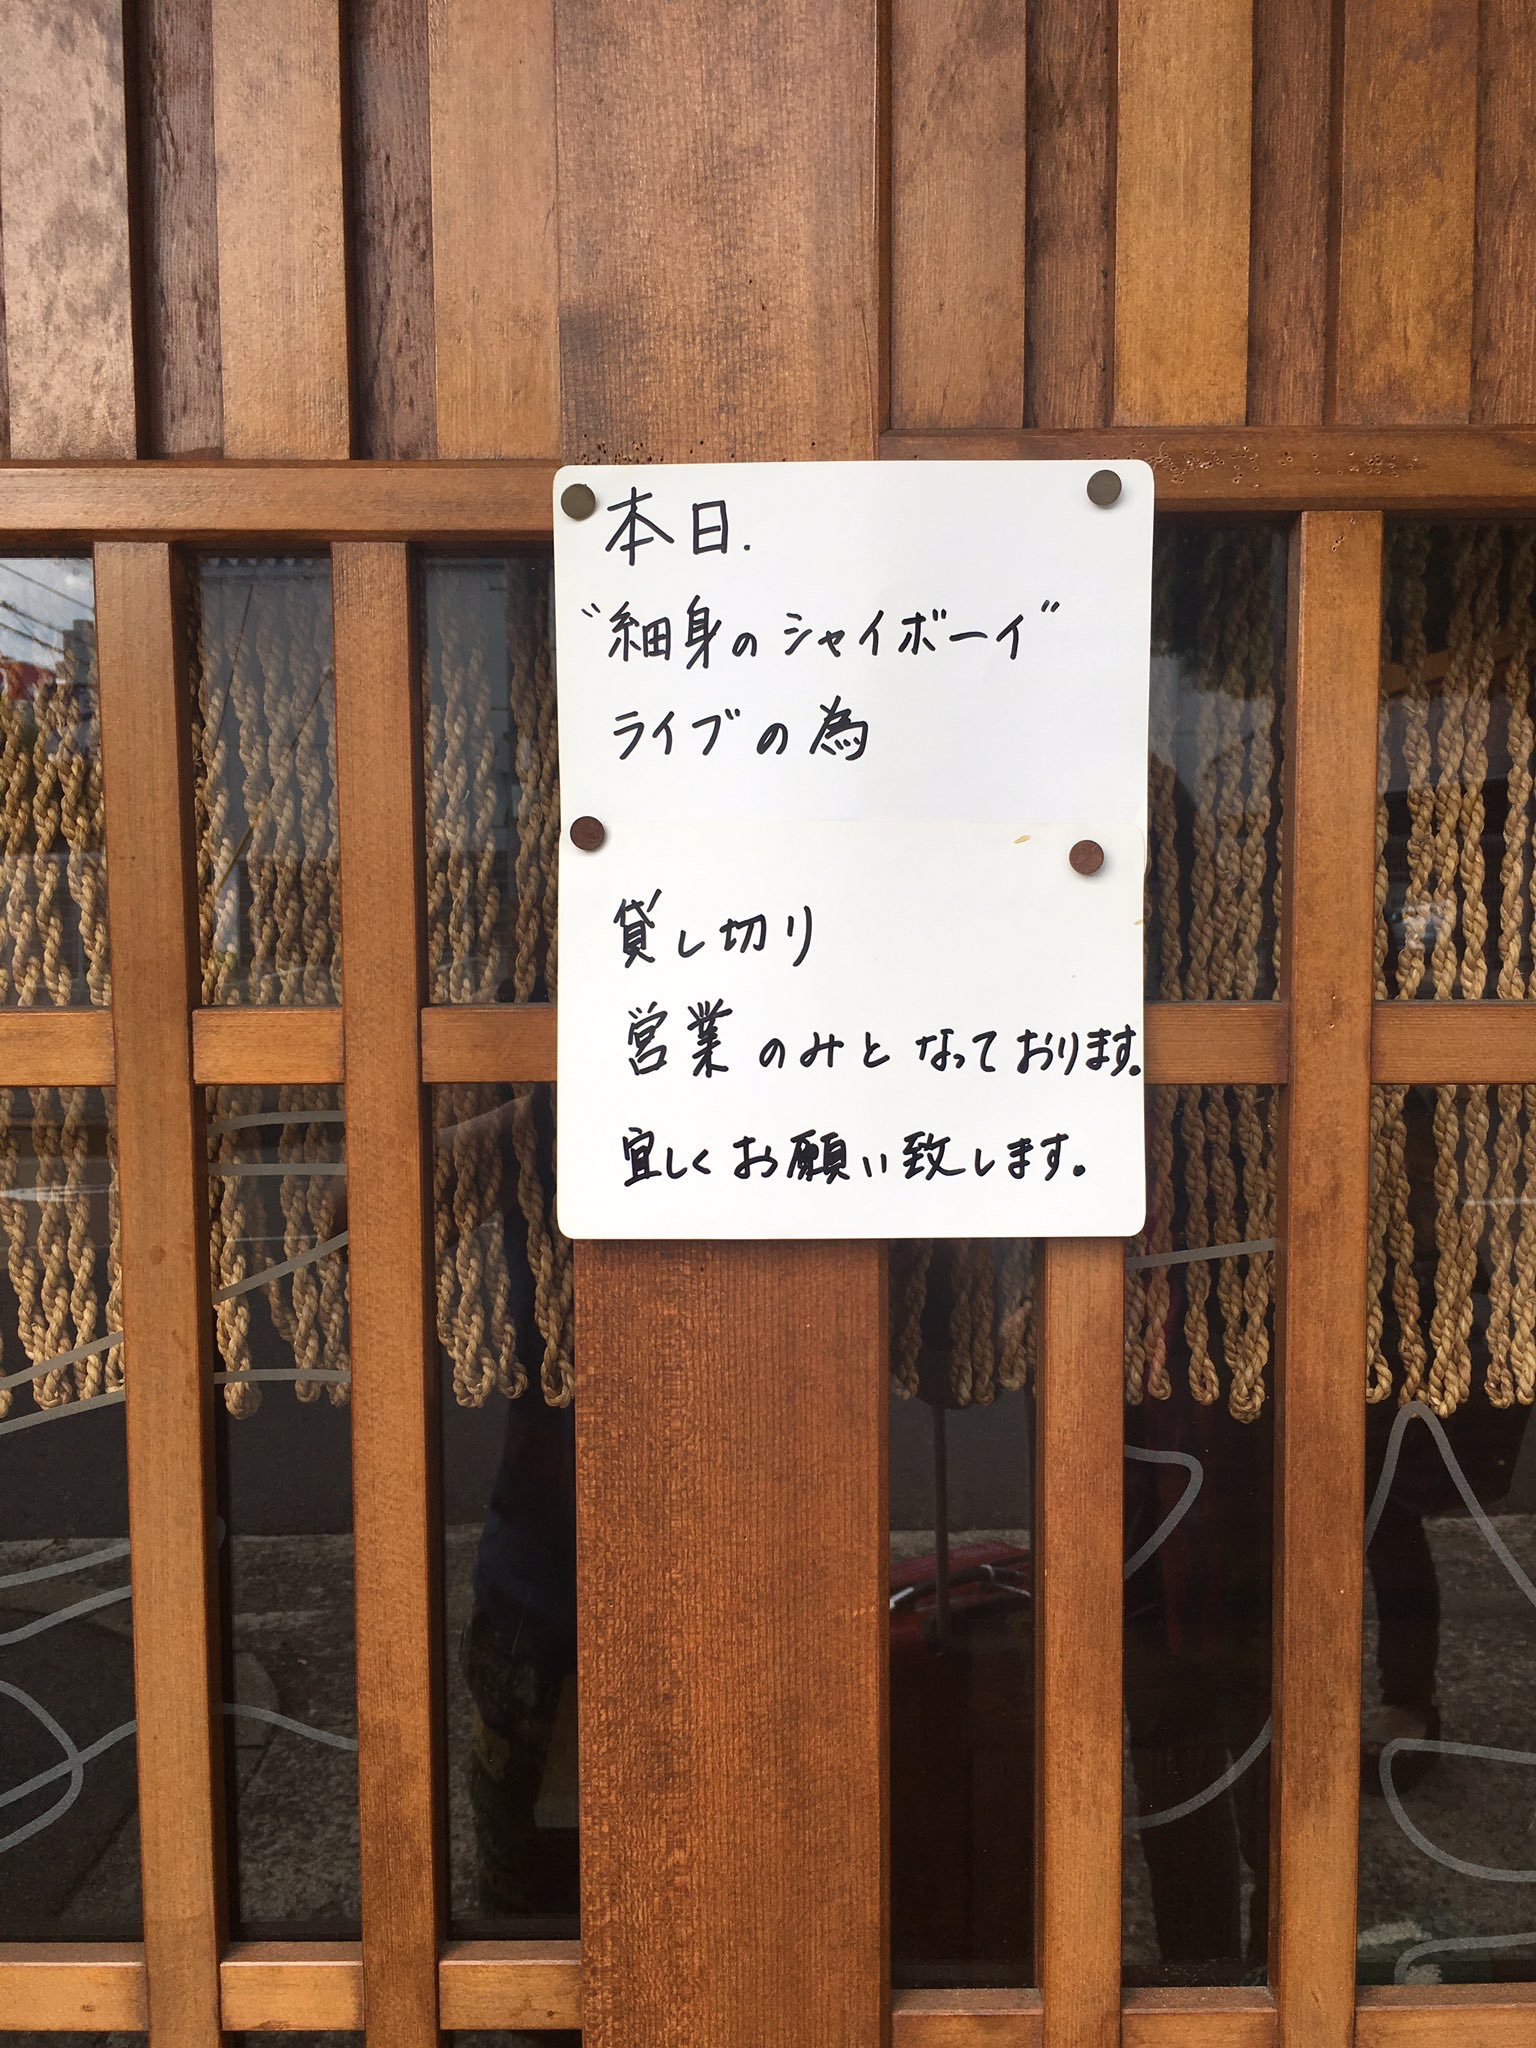 本日.
“細身のシャイボーイ”
ライブの為
貸し切り
営業のみとなっております。
宜しくお願い致します。